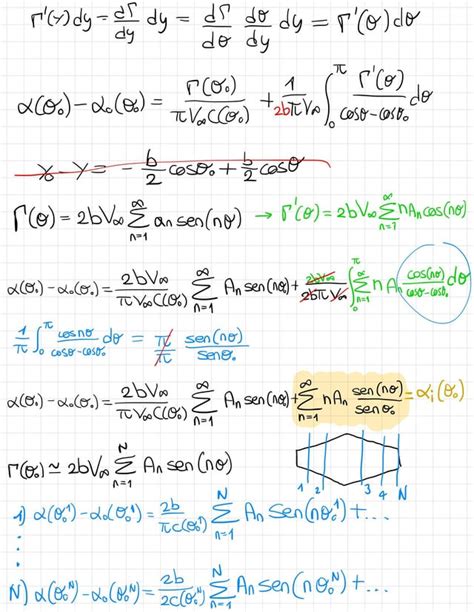 Γ'(y)dy = dΓ/dy dy = dΓ/dθ dθ/dy dy = Γ'(θ)dθ
α(θ₀) - α₀(θ₀) = Γ(θ₀)/(πV∞C(θ₀)) + 1/(2bπV∞) ∫₀^π Γ'(θ)/(cosθ-cosθ₀) dθ
y₀ - y = -b/2 cosθ₀ + b/2 cosθ
Γ(θ) = 2bV∞ Σ_{n=1}^∞ an sen(nθ) → Γ'(θ) = 2bV∞ Σ_{n=1}^∞ nAn cos(nθ)
α(θ₀) - α₀(θ₀) = 2bV∞/(πV∞C(θ₀)) Σ_{n=1}^∞ An sen(nθ) + 2bV∞/(2bπV∞) ∫₀^π Σ_{n=1}^∞ n An cos(nθ)/(cosθ-cosθ₀) dθ
1/π ∫₀^π cosnθ/(cosθ-cosθ₀) dθ = π/π sen(nθ)/senθ₀
α(θ₀) - α₀(θ₀) = 2bV∞/(πV∞C(θ₀)) Σ_{n=1}^∞ An sen(nθ) + Σ_{n=1}^∞ nAn sen(nθ)/senθ₀ = αi(θ₀)
Γ(θ₀) ≃ 2bV∞ Σ_{n=1}^N An sen(nθ)
1 2 3 4 N
1) α(θ₀¹) - α₀(θ₀¹) = 2b/(πc(θ₀¹)) Σ_{n=1}^N An sen(nθ₀¹) + ...
⋮
N) α(θ₀ᴺ) - α₀(θ₀ᴺ) = 2b/(2c(θ₀ᴺ)) Σ_{n=1}^N An sen(nθ₀ᴺ) + ...